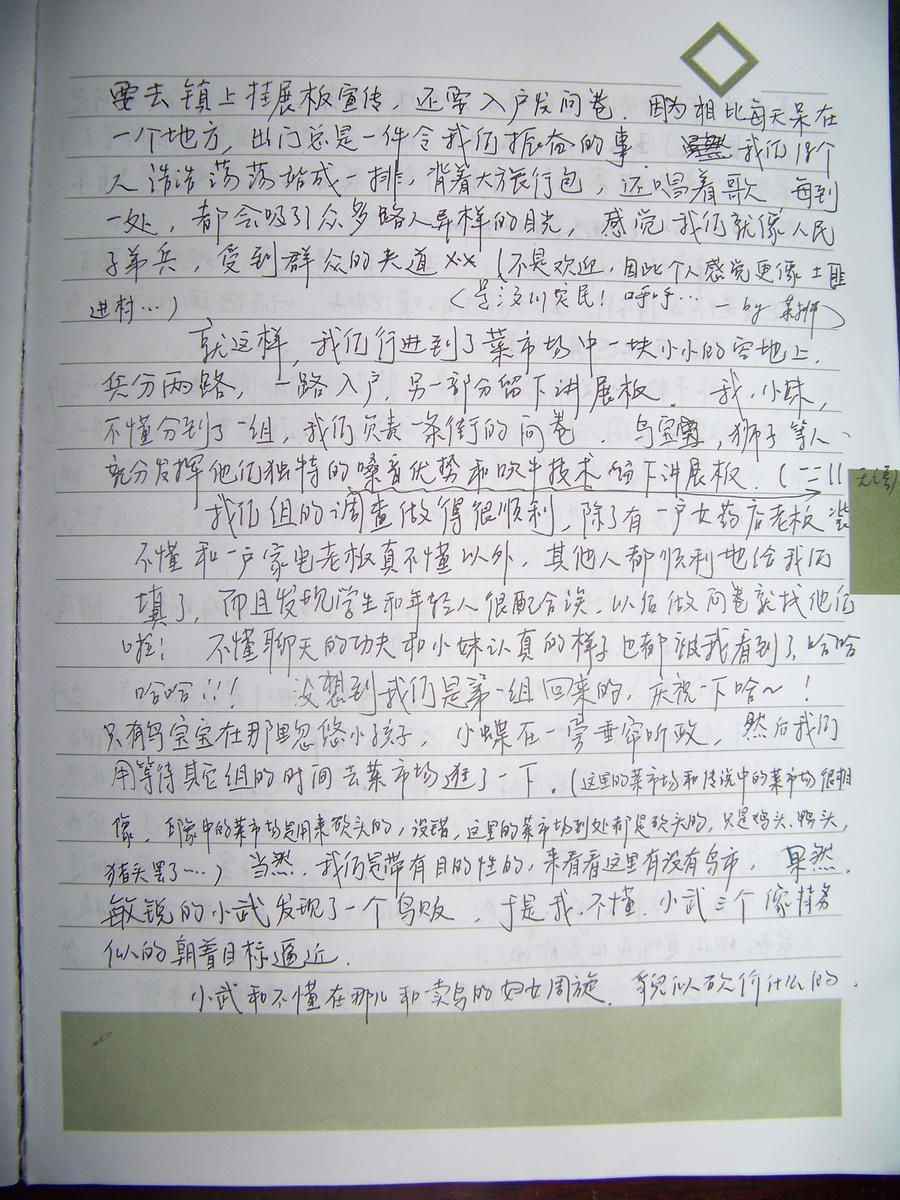 要去镇上挂展板宣传，还要入户发问卷．因为相比每天呆在
一个地方，出门总是一件令我们振奋的事． 我们18个
人浩浩荡荡站成一排，背着大方旅行包，还唱着歌．每到
一处，都会吸引众多路人异样的目光，感觉我们就像人民
子弟兵，受到群众的夹道××（不是欢迎，因此个人感觉更像土匪
进村…）
（是汶川灾民！呼呼… by
就这样，我们行进到了菜市场中一块小小的空地上．
兵分两路，一路入户，另一部分留下讲展板． 我，小妹，
不懂分到了一组，我们负责一条街的问卷 鸟宝宝，狮子等人、
充分发挥他们独特的嗓音优势和吹牛技术留下讲展板．（二二11
无语）
我们组的调查做得很顺利，除了有一户女药店老板装
不懂和一户家电老板真不懂以外，其他人都顺利地给我们
填了，而且发现学生和年轻人很配合诶，以后做问卷就找他们
啦！ 不懂聊天的功夫和小妹认真的样子也都被我看到了，哈哈
哈哈！！！ 没想到我们是第一组回来的，庆祝一下哈～！
只有鸟宝宝在那里忽悠小孩子，小蝶在一旁垂帘听政，然后我们
用等待其它组的时间去菜市场逛了一下．（这里的菜市场和传说中的菜市场很相
像，印象中的菜市场是用来砍头的，没错，这里的菜市场到处都是砍头的，只是鸡头、鸭头，
猪头罢了…）当然，我们是带有目的性的，来看看这里有没有鸟市，果然，
敏锐的小武发现了一个鸟贩，于是我、不懂、小武三个像特务
似的朝着目标逼近．
小武和不懂在那儿和卖鸟的妇女周旋，貌似砍价什么的．